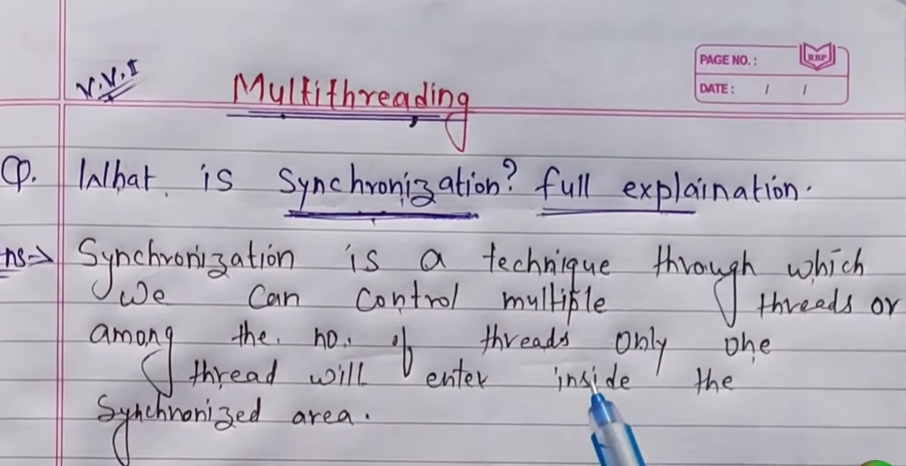 V.V.I
Multithreading
PAGE NO.:
RBP
DATE: / /
Q. What is Synchronization? full explaination.
ns-> Synchronization is a technique through which
we can control multiple threads or
among the no. of threads only one
thread will enter inside the
Synchronized area.